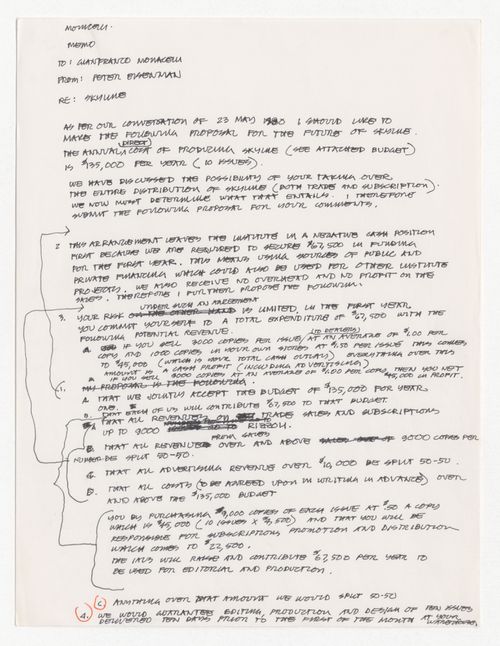 MONACELLI.
MEMO
TO: GIANFRANCO MONACELLI
FROM: PETER EISENMAN
RE: SKYLINE
AS PER OUR CONVERSATION OF 23 MAY 1980 I SHOULD LIKE TO
MAKE THE FOLLOWING PROPOSAL FOR THE FUTURE OF SKYLINE.
(DIRECT)
THE ANNUAL COST OF PRODUCING SKYLINE (SEE ATTACHED BUDGET)
IS $135,000 PER YEAR (10 ISSUES).
WE HAVE DISCUSSED THE POSSIBILITY OF YOUR TAKING OVER
THE ENTIRE DISTRIBUTION OF SKYLINE (BOTH TRADE AND SUBSCRIPTION).
WE NOW MUST DETERMINE WHAT THAT ENTAILS. I THEREFORE
SUBMIT THE FOLLOWING PROPOSAL FOR YOUR COMMENTS.
2. THIS ARRANGEMENT LEAVES THE INSTITUTE IN A NEGATIVE CASH POSITION
FIRST BECAUSE WE ARE REQUIRED TO SECURE $67,500 IN FUNDING
FOR THE FIRST YEAR. THIS MEANS USING SOURCES OF PUBLIC AND
PRIVATE FINANCING WHICH COULD ALSO BE USED FOR OTHER INSTITUTE
PROJECTS. WE ALSO RECEIVE NO OVERHEAD AND NO PROFIT ON THE
SALES. THEREFORE I FURTHER PROPOSE THE FOLLOWING.
UNDER SUCH AN AGREEMENT
3. YOUR RISK ON THE OTHER HAND IS LIMITED, IN THE FIRST YEAR
YOU COMMIT YOURSELF TO A TOTAL EXPENDITURE OF $67,500 WITH THE
FOLLOWING POTENTIAL REVENUE.
(TO DEALERS)
A. IF YOU SELL 3000 COPIES PER ISSUE AT AN AVERAGE OF $1.00 PER
COPY AND 1000 COPIES IN YOUR OWN STORES AT $1.50 PER ISSUE THIS COMES
TO $45,000 (WHICH IS YOUR TOTAL CASH OUTLAY) EVERYTHING OVER THIS
AMOUNT IS A CASH PROFIT (INCLUDING ADVERTISING)
B. IF YOU SELL 9000 COPIES AT AN AVERAGE OF $1.00 PER COPY, THEN YOU NET
$45,000 IN PROFIT.
1. MY PROPOSAL IS THE FOLLOWING.
A. THAT WE JOINTLY ACCEPT THE BUDGET OF $135,000 FOR YEAR
ONE.
B. THAT EACH OF US WILL CONTRIBUTE $67,500 TO THAT BUDGET.
THAT ALL REVENUES ON TRADE SALES AND SUBSCRIPTIONS
UP TO 9000 TO RIZZOLI.
FROM SALES
B. THAT ALL REVENUES OVER AND ABOVE 9000 COPIES PER
NUMBER BE SPLIT 50-50.
C. THAT ALL ADVERTISING REVENUE OVER $10,000 BE SPLIT 50-50.
D. THAT ALL COSTS (TO BE AGREED UPON IN WRITING IN ADVANCE) OVER
AND ABOVE THE $135,000 BUDGET
YOU BY PURCHASING 9,000 COPIES OF EACH ISSUE AT $.50 A COPY
WHICH IS $45,000 (10 ISSUES X $4,500) AND THAT YOU WILL BE
RESPONSIBLE FOR SUBSCRIPTIONS, PROMOTION AND DISTRIBUTION
WHICH COMES TO $22,500.
THE IAUS WILL RAISE AND CONTRIBUTE $67,500 PER YEAR TO
BE USED FOR EDITORIAL AND PRODUCTION.
C. ANYTHING OVER THAT AMOUNT WE WOULD SPLIT 50-50
4. WE WOULD GUARANTEE EDITING, PRODUCTION AND DESIGN OF TEN ISSUES
DELIVERED TEN DAYS PRIOR TO THE FIRST OF THE MONTH AT YOUR
WAREHOUSE.